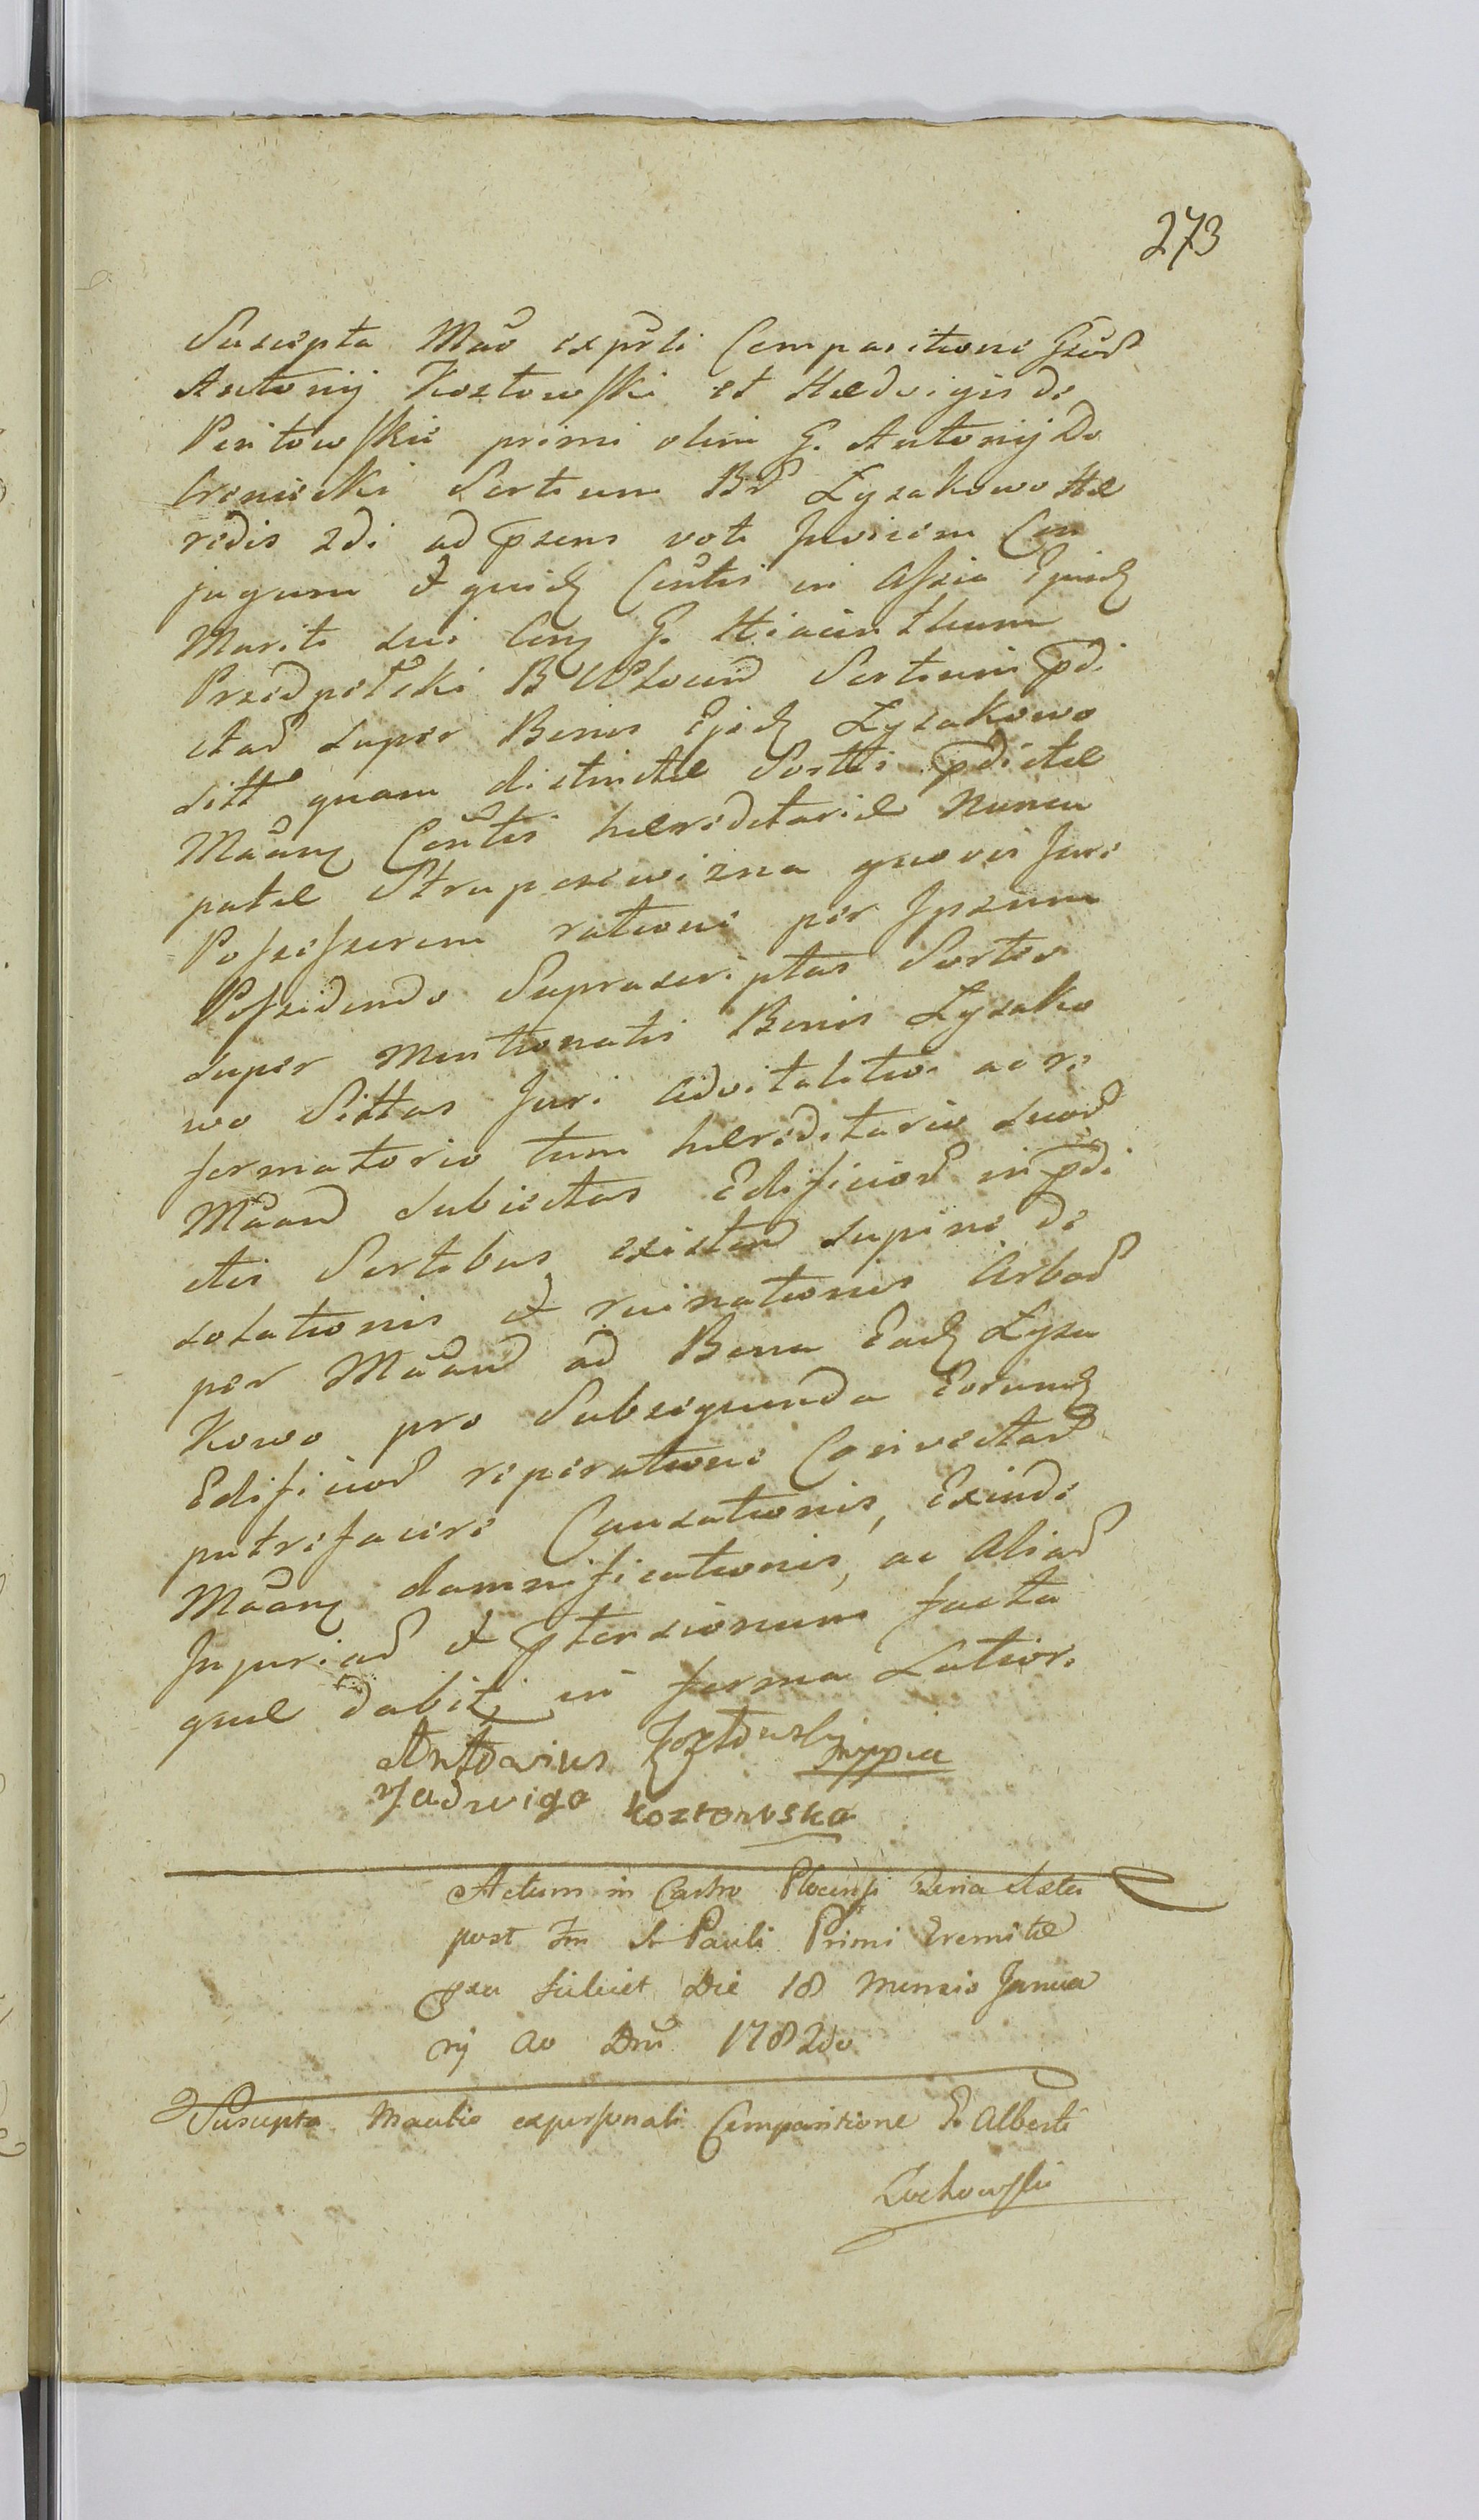 273
Suscepta Mão expřli Comparitione Gsõr
Antonij Kozłowski et Hedvigis de
Peritowskie primi olim G. Antonij Do
broniecki Sortium Br Łysakowo Hæ
redis 2di ad psens voti Invicem Con
jugum et quidẽ Contři in Assia Ejusdẽ
Mariti sui Conq G. Hiacinthum
Przedpełski B Sortium pdi
ctar super Bonis Ejusdẽ Łysakowo
sitt quam distinctæ Sortis pdictæ
Mãanq Contři hæreditariæ Nuncu
patæ Strupczewizna quovis Juri
Possessorem ratione per Ipsum
Possidendo Suprascriptas Sortes
super Mentionatis Bonis Łysako
wo Sittas Juri Advitalitio ac re
formatorio tum hæreditario suor
Mãand Subiectas Edificior in pdi
ctis Sortibus existen supine de
solationis et ruinationis Arbor
per Mãand ad Bona Eadẽ Łysa
kowo pro Subsequenda Eorundẽ
Edificior reperatione Convectar
putrefacere Causationis, Exinde
Mãanq damnificationis, ac Aliar
Injuriar et ptensionum facta
quæ dabit, in forma Latiori
Antonius Kozłowski mppia
Jadwiga Kozłowska
Actum in Castro Plocensi Feria Sexta
post Fm St Pauli Primi Eremitæ
pxa scilicet Die 18 Mensis Janua
rij Ao Dni 1782do
Suscepta Manlis expersonali Comparitione G Alberti
Lochowski